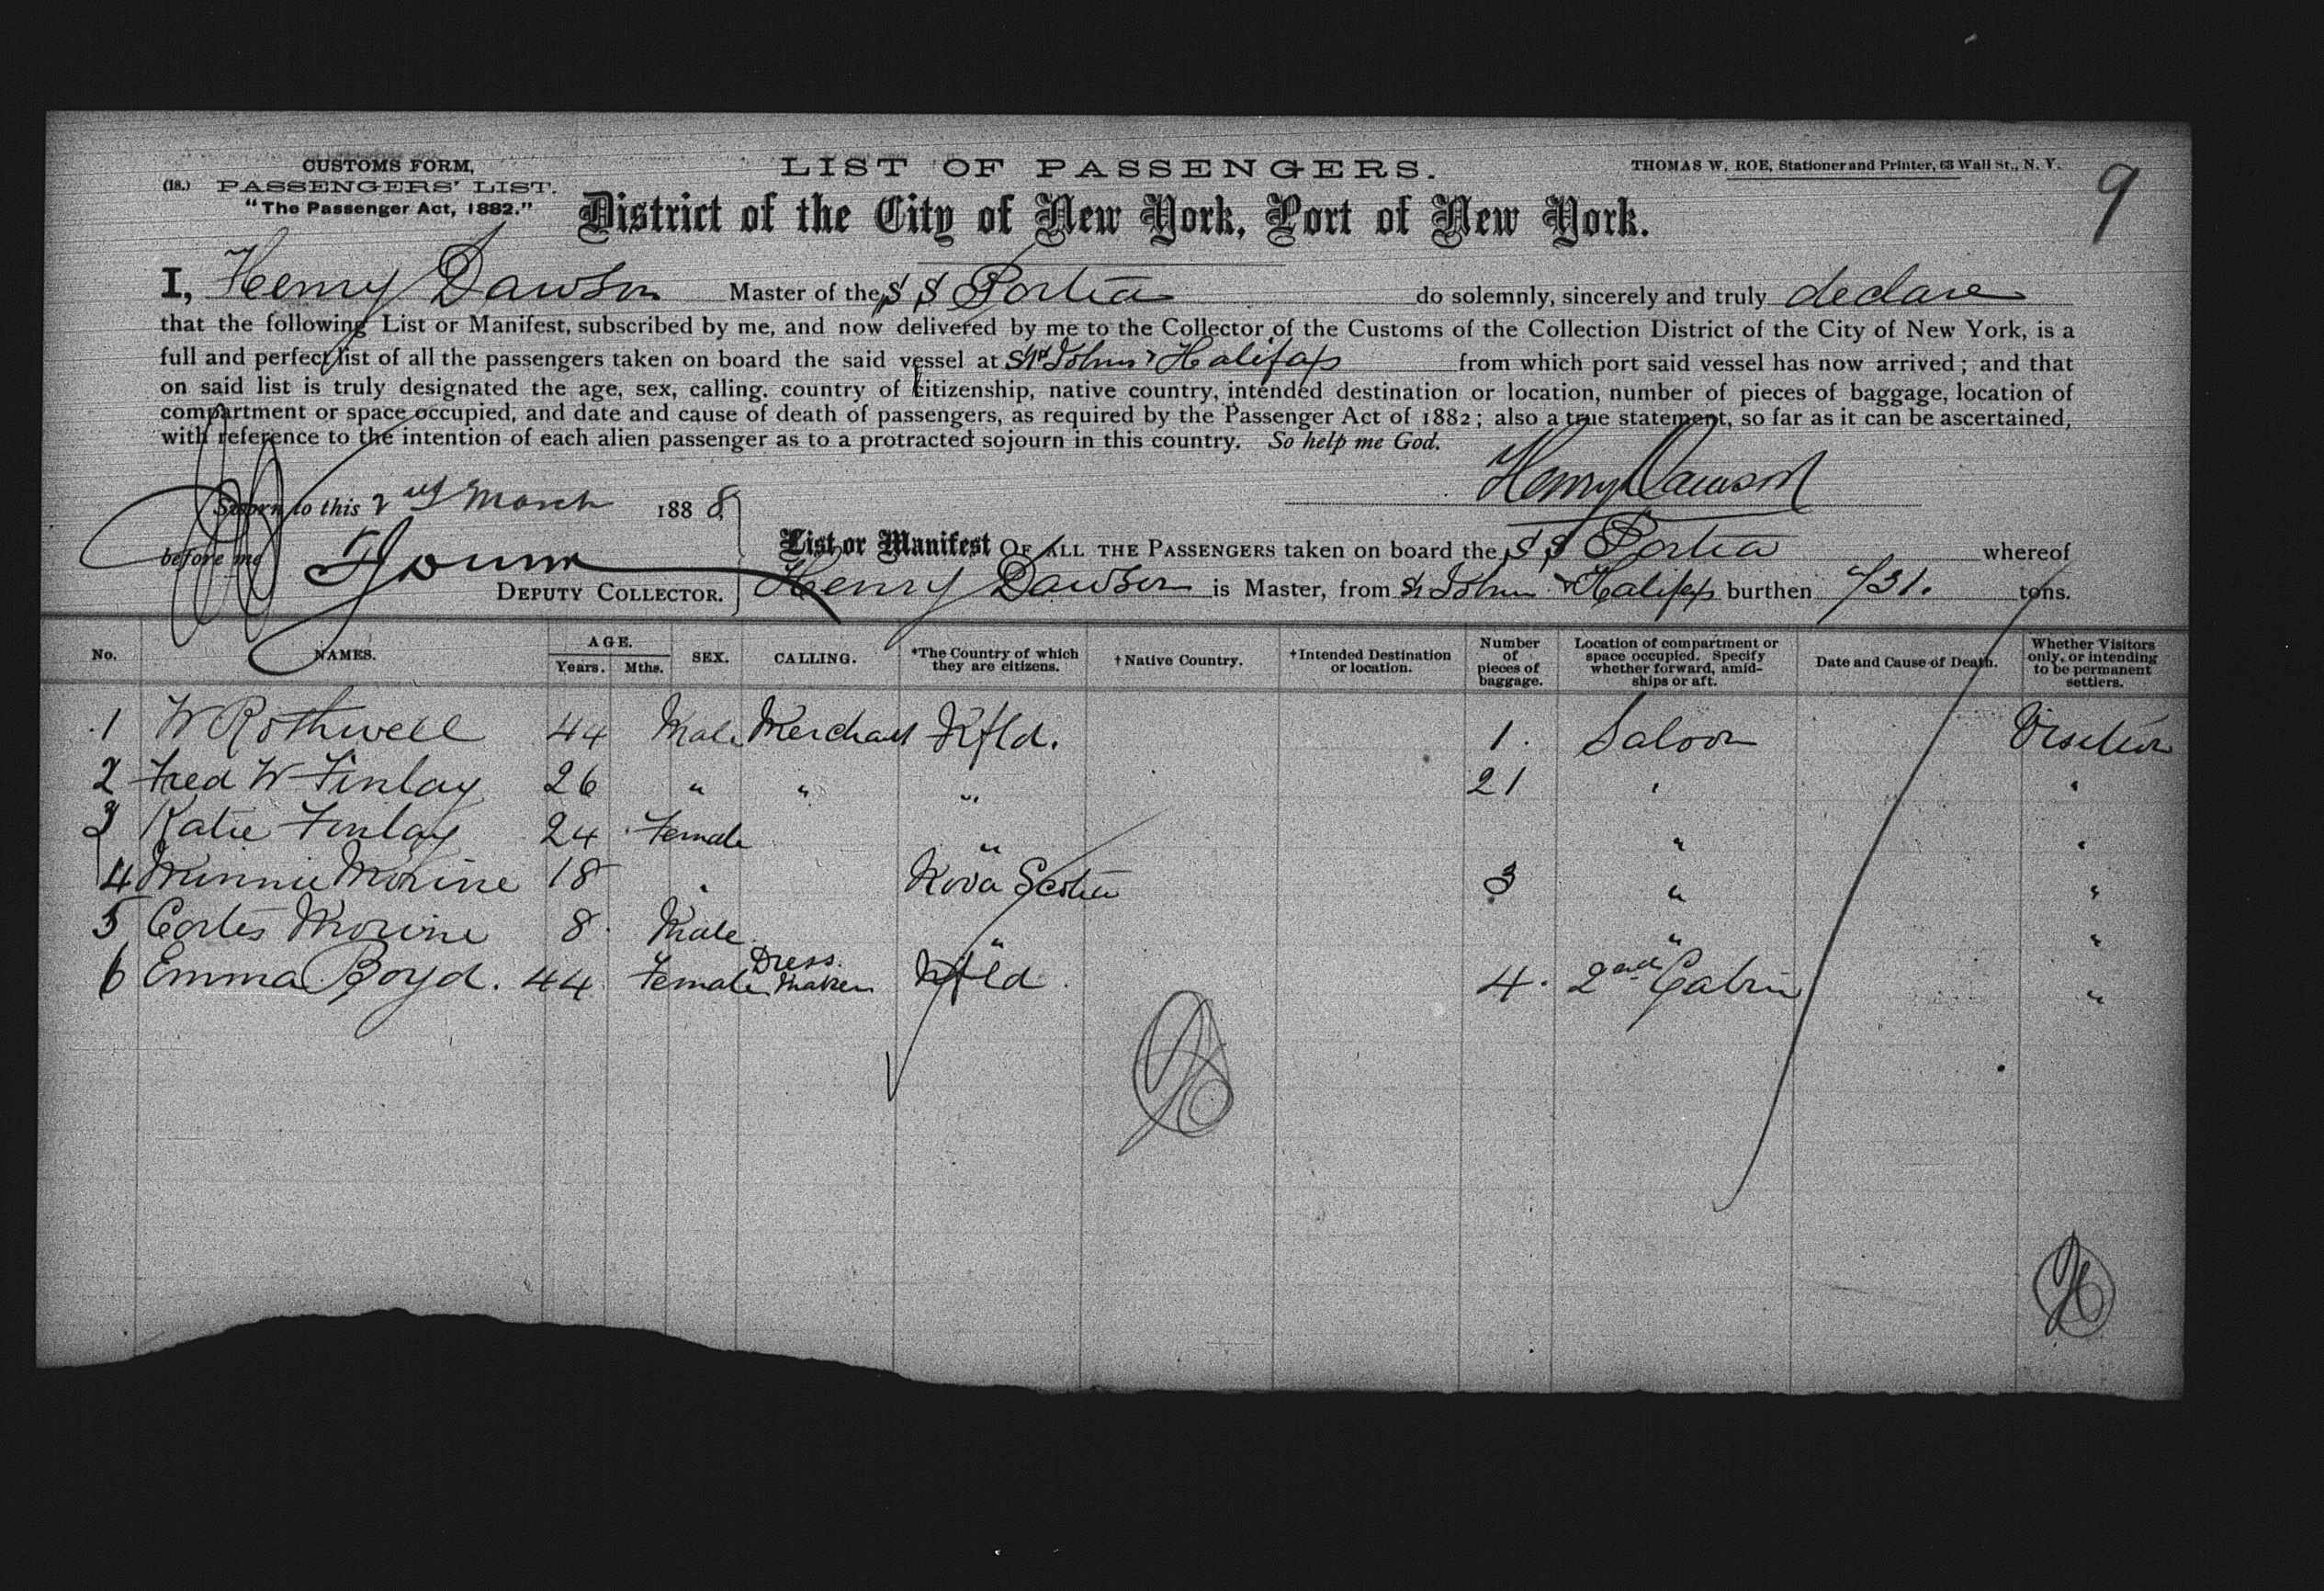 CUSTOMS FORM,
(18.) PASSENGERS' LIST.
"The Passenger Act, 1882."
LIST OF PASSENGERS.
THOMAS W. ROE, Stationer and Printer, 63 Wall St., N. Y.
9
District of the City of New York, Port of New York.
I, Henry Dawson Master of the S S Portia do solemnly, sincerely and truly declare
that the following List or Manifest, subscribed by me, and now delivered by me to the Collector of the Customs of the Collection District of the City of New York, is a
full and perfect list of all the passengers taken on board the said vessel at St Johns & Halifax from which port said vessel has now arrived; and that
on said list is truly designated the age, sex, calling, country of citizenship, native country, intended destination or location, number of pieces of baggage, location of
compartment or space occupied, and date and cause of death of passengers, as required by the Passenger Act of 1882; also a true statement, so far as it can be ascertained,
with reference to the intention of each alien passenger as to a protracted sojourn in this country. So help me God.
Henry Dawson
Sworn to this 2nd March 1888
before me
DEPUTY COLLECTOR.
List or Manifest OF ALL THE PASSENGERS taken on board the S S Portia whereof
Henry Dawson is Master, from St Johns & Halifax burthen 731. tons.
No. NAMES. AGE. Years. Mths. SEX. CALLING. *The Country of which they are citizens. †Native Country. †Intended Destination or location. Number of pieces of baggage. Location of compartment or space occupied. Specify whether forward, amidships or aft. Date and Cause of Death. Whether Visitors only, or intending to be permanent settlers.
1 W Rothwell 44 Male Merchant Nfld. 1. Saloon Visitor
2 Fred W Finlay 26 " " " 21 " "
3 Katie Finlay 24 Female " " "
4 Minnie Morine 18 " Nova Scotia 3 " "
5 Cortes Morine 8 Male " " "
6 Emma Boyd. 44 Female Dress Maker Nfld 4. 2nd Cabin "